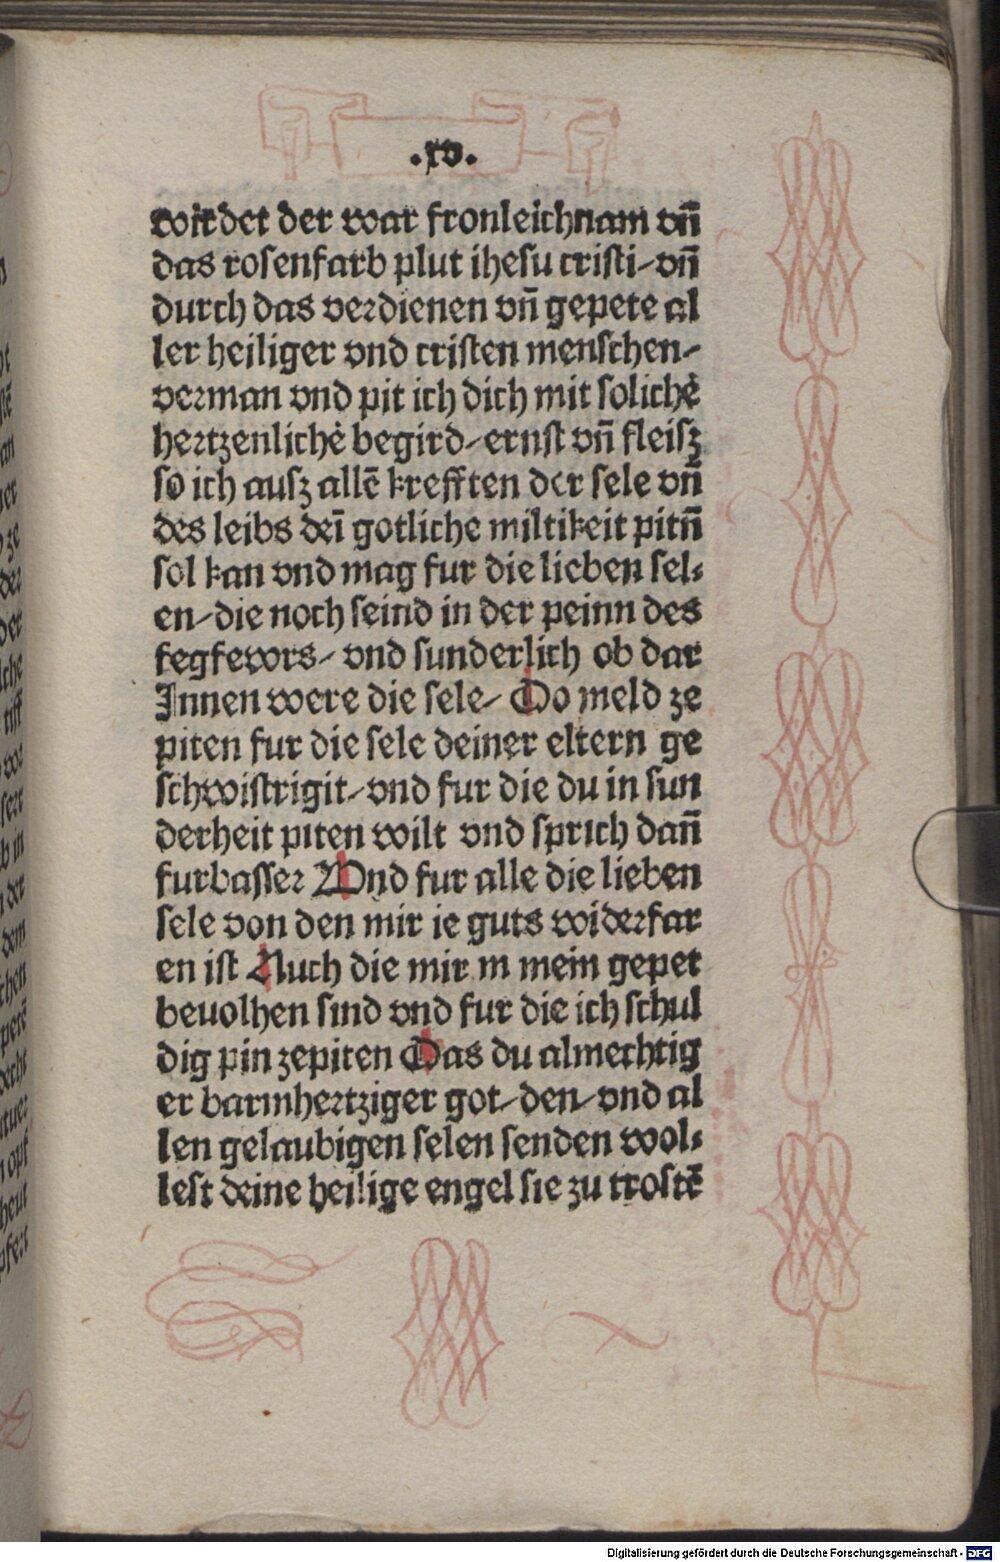 .xv.
wirdet der war fronleichnam vñ
das rosenfarb plut ihesu cristi-vñ
durch das verdienen vñ gepete al
ler heiliger vnd cristen menschen-
verman vnd pit ich dich mit solichē
hertzenlichē begird-ernst vñ fleisz
so ich ausz allē krefften der sele vñ
des leibs dei᷑ gotliche miltikeit pitñ
sol kan vnd mag fur die lieben sel=
en-die noch seind in der peinn des
fegfewrs- vnd sunderlich ob dar
Innen were die sele- Do meld ze
piten fur die sele deiner eltern ge
schwistrigit-vnd fur die du in sun
derheit piten wilt vnd sprich dañ
furbasser Vnd fur alle die lieben
sele von den mir ie guts widerfar
en ist Auch die mir in mein gepet
beuolhen sind vnd fur die ich schul
dig pin zepiten Das du almechtig
er barmhertziger got-den-vnd al
len gelaubigen selen senden wol=
lest deine heilige engel sie zu trostē
Digitalisierung gefördert durch die Deutsche Forschungsgemeinschaft - DFG